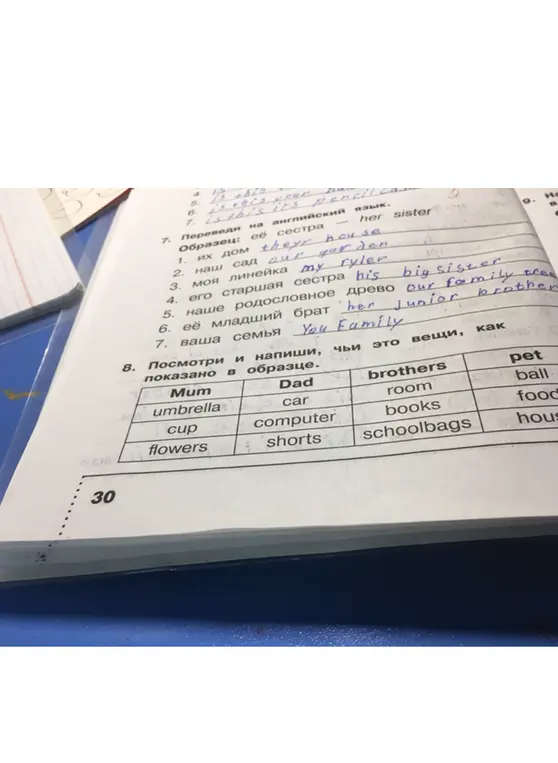 4. is this
5. is this your
6.
7. is this its pencil
7. Переведи на английский язык.
Образец: её сестра – her sister
1. их дом theyr house
2. наш сад our garden
3. моя линейка my ryler
4. его старшая сестра his big sister
5. наше родословное древо our family tree
6. её младший брат her Junior brother
7. ваша семья You Family
8. Посмотри и напиши, чьи это вещи, как
показано в образце.
Mum Dad brothers pet
umbrella car room ball
cup computer books food
flowers shorts schoolbags
30